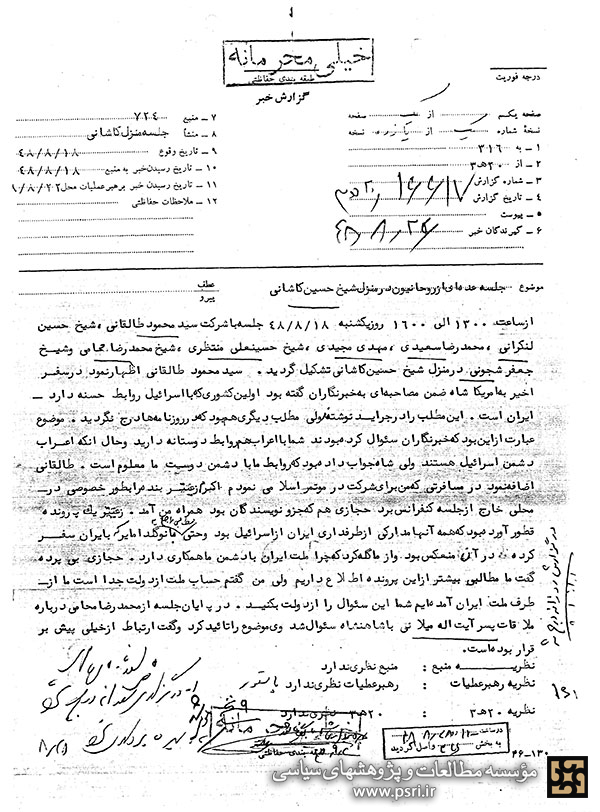 خیلی محرمانه
طبقه بندی حفاظتی
گزارش خبر
درجه فوریت
صفحه یکم از یک صفحه
نسخهٔ شماره یک از پانزده نسخه
۱ ـ به ۳۱۶
۲ ـ از ۲۰هـ۳
۳ ـ شماره گزارش
۴ ـ تاریخ گزارش
۵ ـ پیوست
۶ ـ گیرندگان خبر
۷ ـ منبع ۷۲۴
۸ ـ منشأ جلسه منزل کاشانی
۹ ـ تاریخ وقوع ۴۸/۸/۱۸
۱۰ ـ تاریخ رسیدن خبر به منبع ۴۸/۸/۱۸
۱۱ ـ تاریخ رسیدن خبر برهبر عملیات محل ۸/۸/۲۲
۱۲ ـ ملاحظات حفاظتی
موضوع جلسه عده‌ای از روحانیون در منزل شیخ حسین کاشانی
عطف
پیرو
از ساعت ۱۳۰۰ الی ۱۶۰۰ روز یکشنبه ۴۸/۸/۱۸ جلسه با شرکت سید محمود طالقانی ، شیخ حسین
لنکرانی ، محمد رضا سعیدی ، مهدی مجیدی ، شیخ حسینعلی منتظری ، شیخ محمد رضا حمامی و شیخ
جعفر شجونی در منزل شیخ حسین کاشانی تشکیل گردید . سید محمود طالقانی اظهار نمود در سفر
اخیر به آمریکا شاه ضمن مصاحبه‌ای به خبرنگاران گفته بود اولین کشوری که با اسرائیل روابط حسنه دارد ـ
ایران است . این مطلب را در جراید نوشتند ولی مطلب دیگری هم بود که در روزنامه‌ها درج نگردید . موضوع
عبارت از این بود که خبرنگاران سئوال کرده بودند شما با اعراب هم روابط دوستانه دارید و حال آنکه اعراب
دشمن اسرائیل هستند ولی شاه جواب داده بود که روابط ما با دشمن دوست ما معلوم است . طالقانی
اضافه نمود در مسافرتی که من برای شرکت در موتمر اسلامی نمودم اکبر زعیتر بنده را بطور خصوصی در ـ
محلی خارج از جلسه کنفرانس برد حجازی هم که جزو نویسندگان بود همراه من آمد . زعیتر یک پرونده
قطور آورده بود که همه آنها مدارکی از طرفداری ایران از اسرائیل بود وحتی مایر که بایران سفر
کرده در آن منعکس بود واز ما گله کرد که چرا ملت ایران با دشمن ما همکاری دارد . حجازی بی پرده
گفت ما مطالبی بیشتر از این پرونده اطلاع داریم ولی من گفتم حساب ملت از دولت جدا است ما از ـ
طرف ملت ایران آمده‌ایم شما این سئوال را از دولت بکنید . در پایان جلسه از محمد رضا محامی درباره
ملاقات پسر آیت اله میلانی با شاهنشاه سئوال شد وی موضوع را تائید کرد و گفت ارتباط از خیلی پیش بر
قرار بوده است .
نظریه منبع : منبع نظری ندارد
نظریه رهبر عملیات : رهبر عملیات نظری ندارد
نظریه ۲۰هـ۳ : ۲۰هـ۳ نظری ندارد
به بخش واصل گردید
طبقه بندی حفاظتی
۴۶ـ۱۳۰
مؤسسه مطالعات و پژوهشهای سیاسی
www.psri.ir